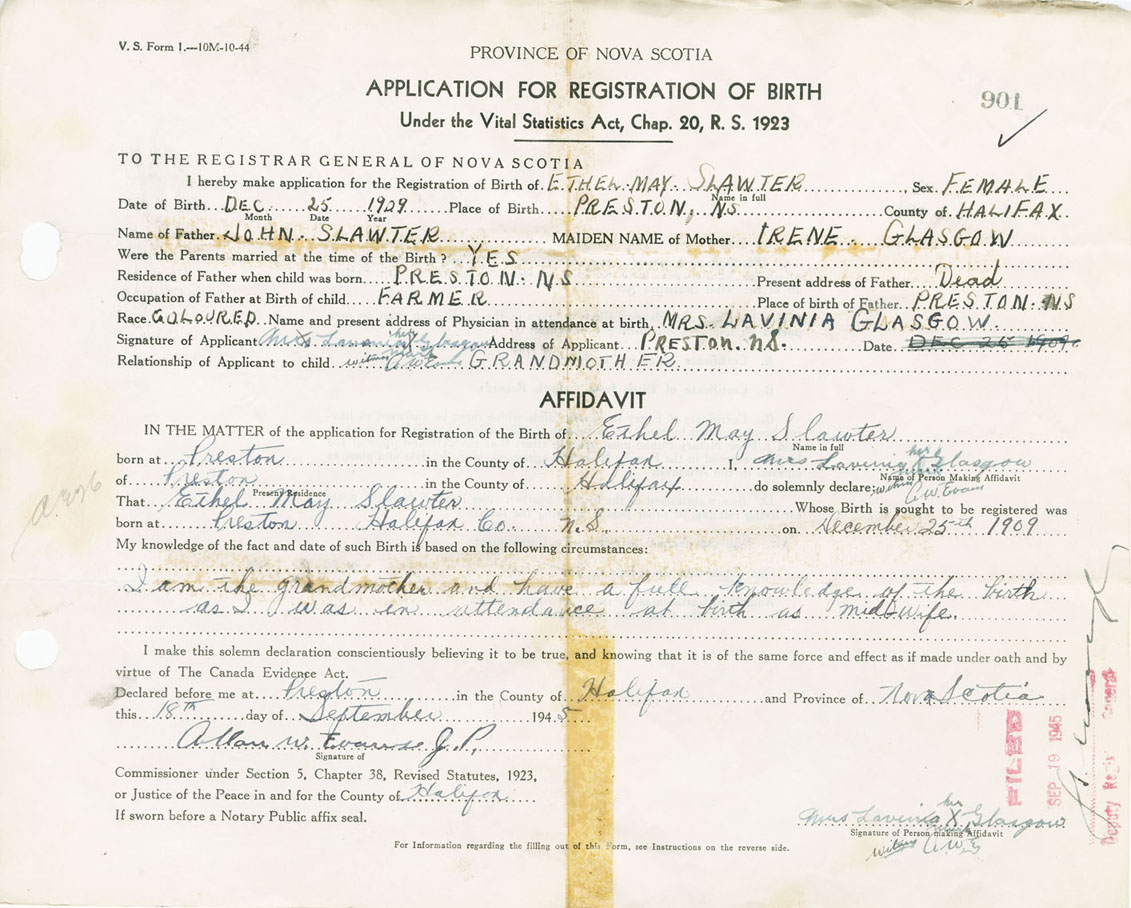 V. S. Form 1.—10M-10-44
PROVINCE OF NOVA SCOTIA
APPLICATION FOR REGISTRATION OF BIRTH
901
Under the Vital Statistics Act, Chap. 20, R. S. 1923
TO THE REGISTRAR GENERAL OF NOVA SCOTIA
I hereby make application for the Registration of Birth of ETHEL MAY SLAWTER, Sex FEMALE
Name in full
Date of Birth DEC 25 1909 Place of Birth PRESTON, NS County of HALIFAX
Month Date Year
Name of Father JOHN SLAWTER MAIDEN NAME of Mother IRENE GLASGOW
Were the Parents married at the time of the Birth? YES
Residence of Father when child was born PRESTON NS Present address of Father Dead
Occupation of Father at Birth of child FARMER Place of birth of Father PRESTON NS
Race COLOURED Name and present address of Physician in attendance at birth MRS. LAVINIA GLASGOW
Signature of Applicant Mrs Lavinia X Glasgow her mark Address of Applicant PRESTON. NS. Date DEC 25 1909
Relationship of Applicant to child witness GRANDMOTHER
AFFIDAVIT
IN THE MATTER of the application for Registration of the Birth of Ethel May Slawter
Name in full
born at Preston in the County of Halifax I, Mrs Lavinia X Glasgow her
Name of Person Making Affidavit
of Preston in the County of Halifax do solemnly declare witness A W Evans
Present Residence
That Ethel May Slawter Whose Birth is sought to be registered was
born at Preston Halifax Co. N.S on December 25th 1909
My knowledge of the fact and date of such Birth is based on the following circumstances:
I am the grandmother and have a full knowledge of the birth
as I was in attendance at birth as midwife.
I make this solemn declaration conscientiously believing it to be true, and knowing that it is of the same force and effect as if made under oath and by
virtue of The Canada Evidence Act.
Declared before me at Preston in the County of Halifax and Province of Nova Scotia
this 18th day of September 1945
Allan W. Evans J.P.
Signature of
Commissioner under Section 5, Chapter 38, Revised Statutes, 1923,
or Justice of the Peace in and for the County of Halifax
If sworn before a Notary Public affix seal.
FILED
SEP 19 1945
Deputy Regis General
Mrs Lavinia X Glasgow her mark
Signature of Person making Affidavit
witness A W E
For Information regarding the filling out of this Form, see Instructions on the reverse side.